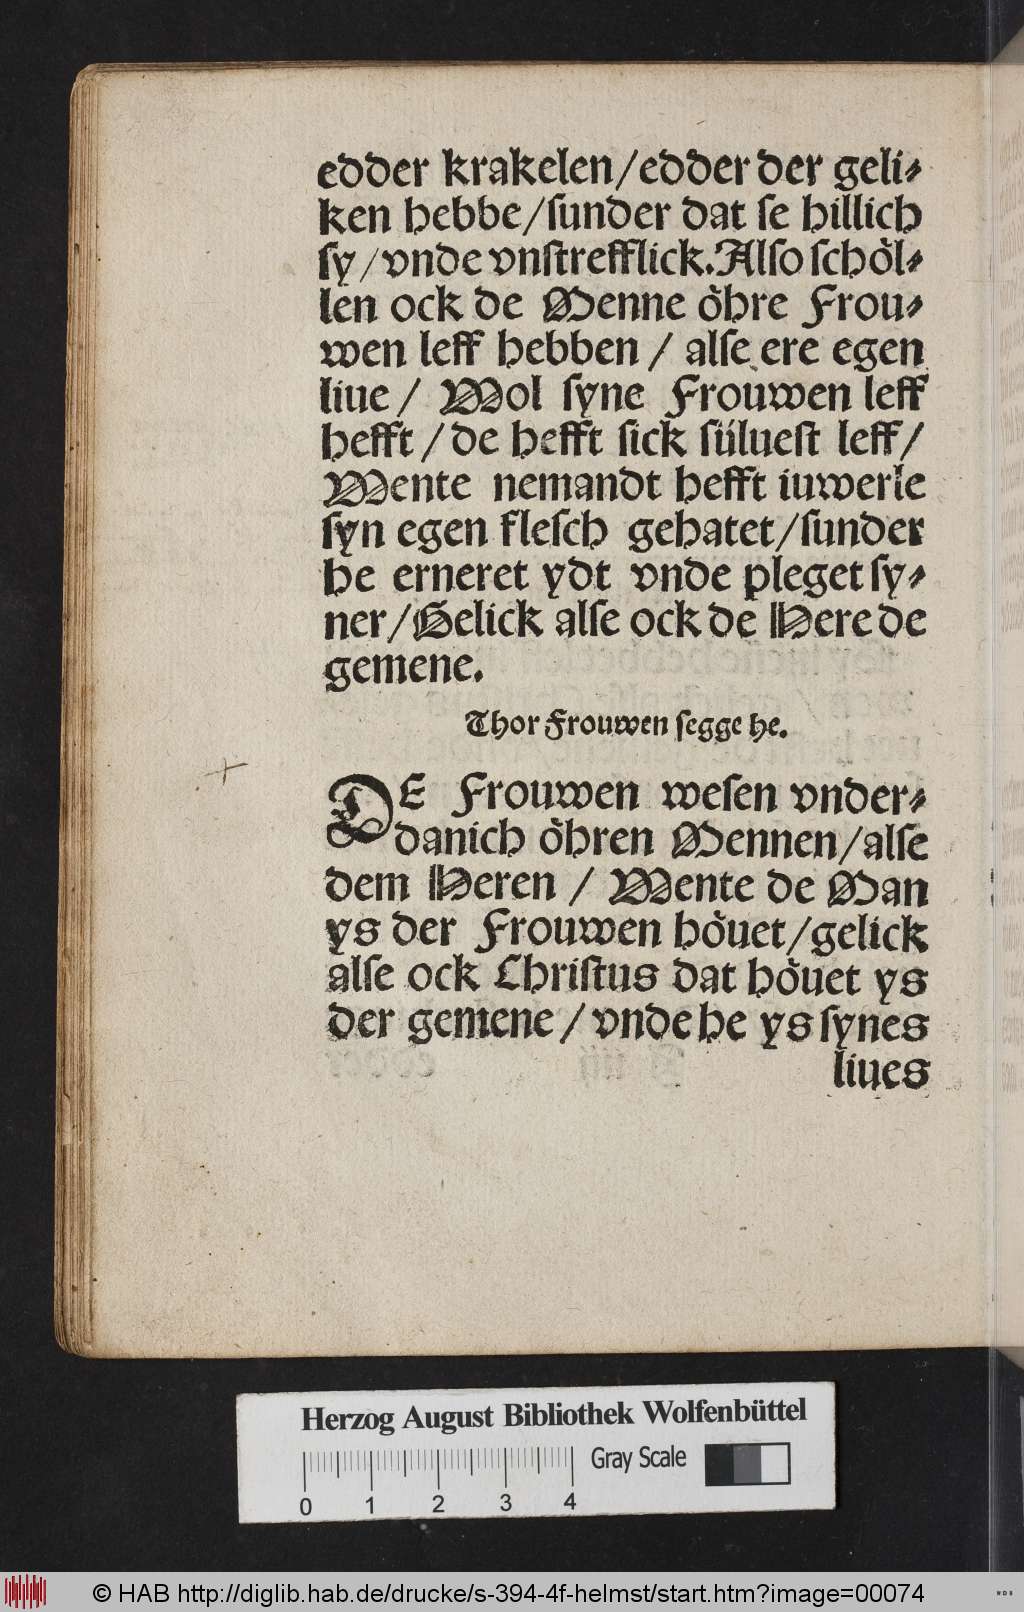 edder krakelen/edder der geli⸗
ken hebbe/ſunder dat ſe hillich
ſy/vnde vnſtrefflick.Alſo ſchoͤl⸗
len ock de Menne oͤhre Frou⸗
wen leff hebben / alſe ere egen
liue / Wol ſyne Frouwen leff
hefft / de hefft ſick ſuͤlueſt leff/
Wente nemandt hefft iuwerle
ſyn egen fleſch gehatet/ſunder
he erneret ydt vnde pleget ſy⸗
ner/Gelick alſe ock de Here de
gemene.
Thor Frouwen ſegge he.
DE Frouwen weſen vnder⸗
danich oͤhren Mennen/alſe
dem Heren / Wente de Man
ys der Frouwen hoͤuet/gelick
alſe ock Chriſtus dat hoͤuet ys
der gemene / vnde he ys ſynes
liues
Herzog August Bibliothek Wolfenbüttel
Gray Scale
0 1 2 3 4
© HAB http://diglib.hab.de/drucke/s-394-4f-helmst/start.htm?image=00074